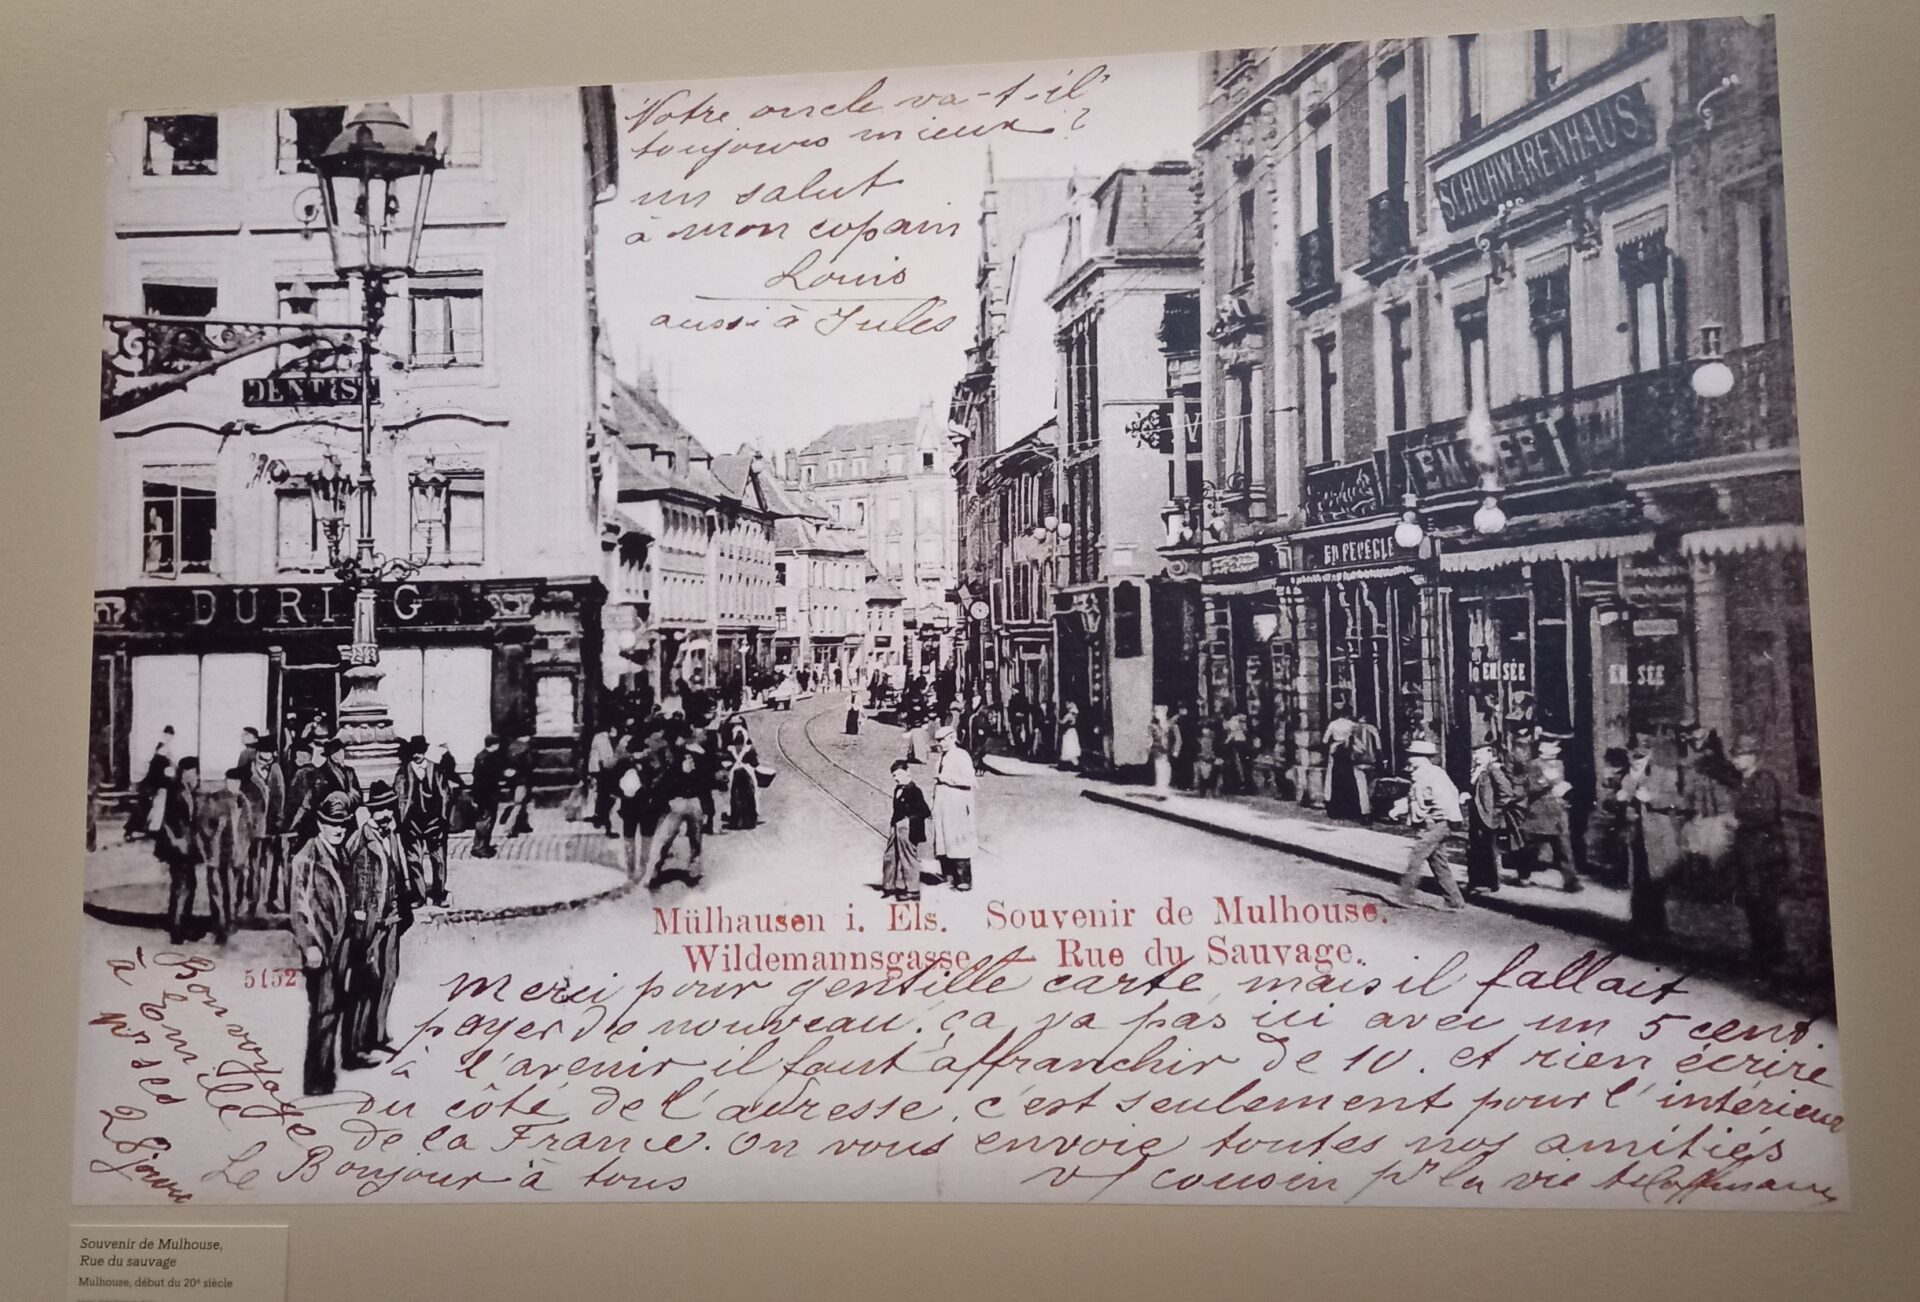 Votre oncle va-t-il
toujours mieux?
un salut
à mon copain
Louis
aussi à Jules
SCHUHWARENHAUS
DENTIST
DURING
W
EN SÉE
EN SÉE
Mülhausen i. Els. Souvenir de Mulhouse.
Wildemannsgasse — Rue du Sauvage.
5152
Merci pour gentille carte, mais il fallait
payer de nouveau. ça va pas ici avec un 5 cent.
à l'avenir il faut affranchir de 10. et rien écrire
du côté de l'adresse, c'est seulement pour l'intérieur
de la France. On vous envoie toutes nos amitiés
Le Bonjour à tous
cousin pr la vie
Bon voyage
à Emile
28
Souvenir de Mulhouse,
Rue du sauvage
Mulhouse, début du 20e siècle